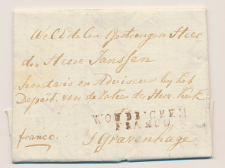 Wel Edelen Gestrengen Heer
den Heere Janssen
Secretaris en Adviseur bij het
Depart. van de Zaken der Herv. Kerk
WOUDRICHEM
FRANCO
franco. 's Gravenhage